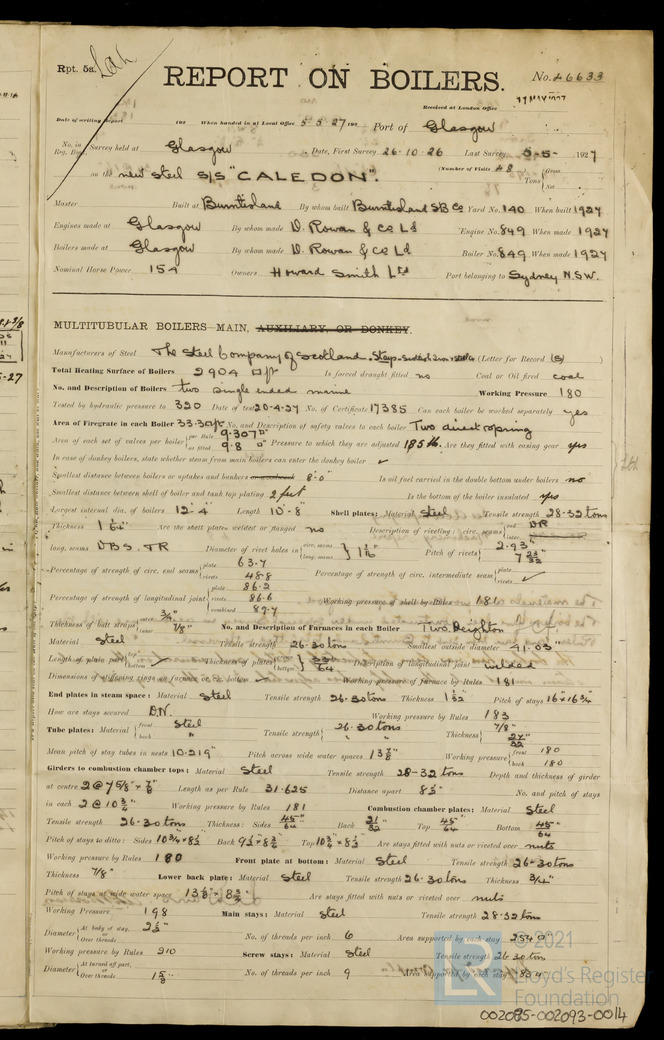 Rpt. 5a.
REPORT ON BOILERS.
No. 46633
Received at London Office
Date of writing Report 192 When handed in at Local Office 5·5·27 192 Port of Glasgow
No. in Reg. Book. Survey held at Glasgow Date, First Survey 26·10·26 Last Survey 5-5- 1927
on the new steel S/S "CALEDON". (Number of Visits 48 Tons Gross Net
Master Built at Burntisland By whom built Burntisland SB Co Yard No. 140 When built 1927
Engines made at Glasgow By whom made D. Rowan & Co Ld Engine No. 849 When made 1927
Boilers made at Glasgow By whom made D. Rowan & Co Ld Boiler No. 849 When made 1927
Nominal Horse Power 154 Owners Howard Smith Ltd Port belonging to Sydney N.S.W.
MULTITUBULAR BOILERS MAIN, AUXILIARY, OR DONKEY.
Manufacturers of Steel The Steel Company of Scotland. Stays (Letter for Record (S) )
Total Heating Surface of Boilers 2904 □ft Is forced draught fitted no Coal or Oil fired coal
No. and Description of Boilers two single ended marine Working Pressure 180
Tested by hydraulic pressure to 320 Date of test 20·4·27 No. of Certificate 17385 Can each boiler be worked separately yes
Area of Firegrate in each Boiler 33.3 □ft No. and Description of safety valves to each boiler Two direct spring
Area of each set of valves per boiler per Rule 9.307 □" as fitted 9.8 □" Pressure to which they are adjusted 185 lb. Are they fitted with easing gear yes
In case of donkey boilers, state whether steam from main boilers can enter the donkey boiler ✓
Smallest distance between boilers or uptakes and bunkers 8'-0" Is oil fuel carried in the double bottom under boilers no
Smallest distance between shell of boiler and tank top plating 2 feet Is the bottom of the boiler insulated yes
Largest internal dia. of boilers 12'-4" Length 10'-8 Shell plates: Material steel Tensile strength 28-32 tons
Thickness Are the shell plates welded or flanged no Description of riveting: circ. seams end DR
long. seams DBS. TR Diameter of rivet holes in circ. seams long. seams 1 1/16" Pitch of rivets 2.93" 7 23/32
Percentage of strength of circ. end seams plate 63.7 rivets 48.8 Percentage of strength of circ. intermediate seam plate rivets ✓
Percentage of strength of longitudinal joint plate 86.2 rivets 86.6 combined 89.7 Working pressure of shell by Rules 181
Thickness of butt straps outer 3/4" inner 7/8" No. and Description of Furnaces in each Boiler Two Deighton
Material Steel Tensile strength 26-30 tons Smallest outside diameter 41.03"
Length of plain part top bottom ✓ Thickness of plates crown bottom 33/64" Description of longitudinal joint welded
Dimensions of stiffening rings on furnace or c.c. bottom ✓ Working pressure of furnace by Rules 181
End plates in steam space: Material Steel Tensile strength 26-30 tons Thickness 1 1/32" Pitch of stays 16" x 16 3/4"
How are stays secured D.N. Working pressure by Rules 183
Tube plates: Material front back Steel " Tensile strength 26-30 tons " " Thickness 7/8" 27/32
Mean pitch of stay tubes in nests 10.219" Pitch across wide water spaces 13 7/8" Working pressure front 180 back 180
Girders to combustion chamber tops: Material Steel Tensile strength 28-32 tons Depth and thickness of girder
at centre 2 @ 7 5/8" x 7/8" Length as per Rule 31.625 Distance apart 8 1/2" No. and pitch of stays
in each 2 @ 10 3/4" Working pressure by Rules 181 Combustion chamber plates: Material Steel
Tensile strength 26-30 tons Thickness: Sides 45/64" Back 21/32 Top 45/64 Bottom 45/64
Pitch of stays to ditto: Sides 10 3/4" x 8 1/2 Back 9 1/2" x 8 3/4" Top 10 3/4" x 8 1/2 Are stays fitted with nuts or riveted over nuts
Working pressure by Rules 180 Front plate at bottom: Material Steel Tensile strength 26-30 tons
Thickness 7/8" Lower back plate: Material Steel Tensile strength 26-30 tons Thickness 3/4"
Pitch of stays at wide water space 13 1/2" x 8 3/4" Are stays fitted with nuts or riveted over nuts
Working Pressure 198 Main stays: Material Steel Tensile strength 28-32 tons
Diameter At body of stay, or Over threads 2 1/2" No. of threads per inch 6 Area supported by each stay 254 □"
Working pressure by Rules 210 Screw stays: Material Steel Tensile strength 26-30 tons
Diameter At turned off part, or Over threads 1 5/8" No. of threads per inch 9 Area supported by each stay
© 2021
Lloyd's Register
Foundation
002085-002093-0014